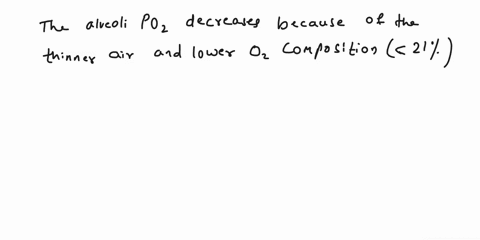 The alveoli PO2 decreases because of the
thinner air and lower O2 composition (< 21%)